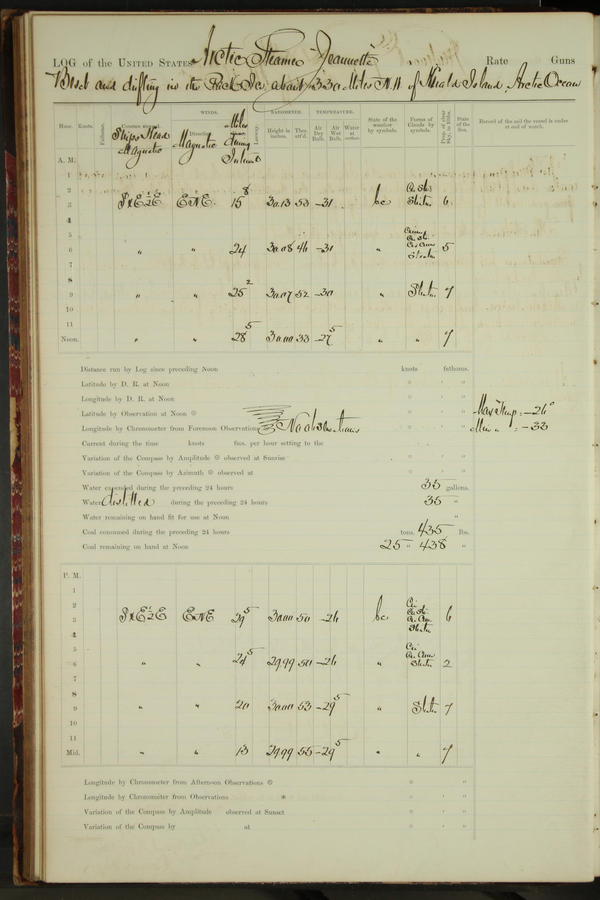 LOG of the UNITED STATES Arctic Steamer "Jeannette" Rate Guns
and drifting in the Pack Ice, about 330 Miles N.W. of Herald Island, Arctic Ocean
WINDS. BAROMETER. TEMPERATURE.
Hour. Knots. Fathoms. Ships Head Magnetic Direction Magnetic Miles during Leeway. Height in inches. Ther. att'd. Air Dry Bulb. Air Wet Bulb. Water at surface. State of the weather by symbols. Forms of Clouds by symbols. Prop. of clear Sky, in 10ths. State of the Sea. Record of the sail the vessel is under at end of watch.
A. M.
1
2
3 ENE 15 8 30.13 53 -31 bc 6
4
5
6 " " 24 30.08 46 -31 " 5
7
8
9 " " 25 2 30.07 52 -30 " 7
10
11
Noon. " " 28 5 30.00 33 -27 5 " " 7
Distance run by Log since preceding Noon knots fathoms.
Latitude by D. R. at Noon ° ' "
Longitude by D. R. at Noon ° ' "
Latitude by Observation at Noon ° ' " Max Temp = -26°
Longitude by Chronometer from Forenoon Observations No observations ° ' " Min " = -33
Current during the time knots fms. per hour setting to the
Variation of the Compass by Amplitude observed at Sunrise ° ' "
Variation of the Compass by Azimuth observed at ° ' "
Water expended during the preceding 24 hours 35 gallons.
Water distilled during the preceding 24 hours 35 "
Water remaining on hand fit for use at Noon "
Coal consumed during the preceding 24 hours tons. 435 lbs.
Coal remaining on hand at Noon 25 " 438 "
P. M.
1
2
3 ENE 29 5 30.00 50 -26 bc 6
4
5
6 " " 24 5 29.99 50 -26 " 2
7
8
9 " " 20 30.00 53 -29 5 " 7
10
11
Mid. " " 13 29.99 55 -29 5 " " 7
Longitude by Chronometer from Afternoon Observations ° ' "
Longitude by Chronometer from Observations * ° ' "
Variation of the Compass by Amplitude observed at Sunset ° ' "
Variation of the Compass by at ° ' "